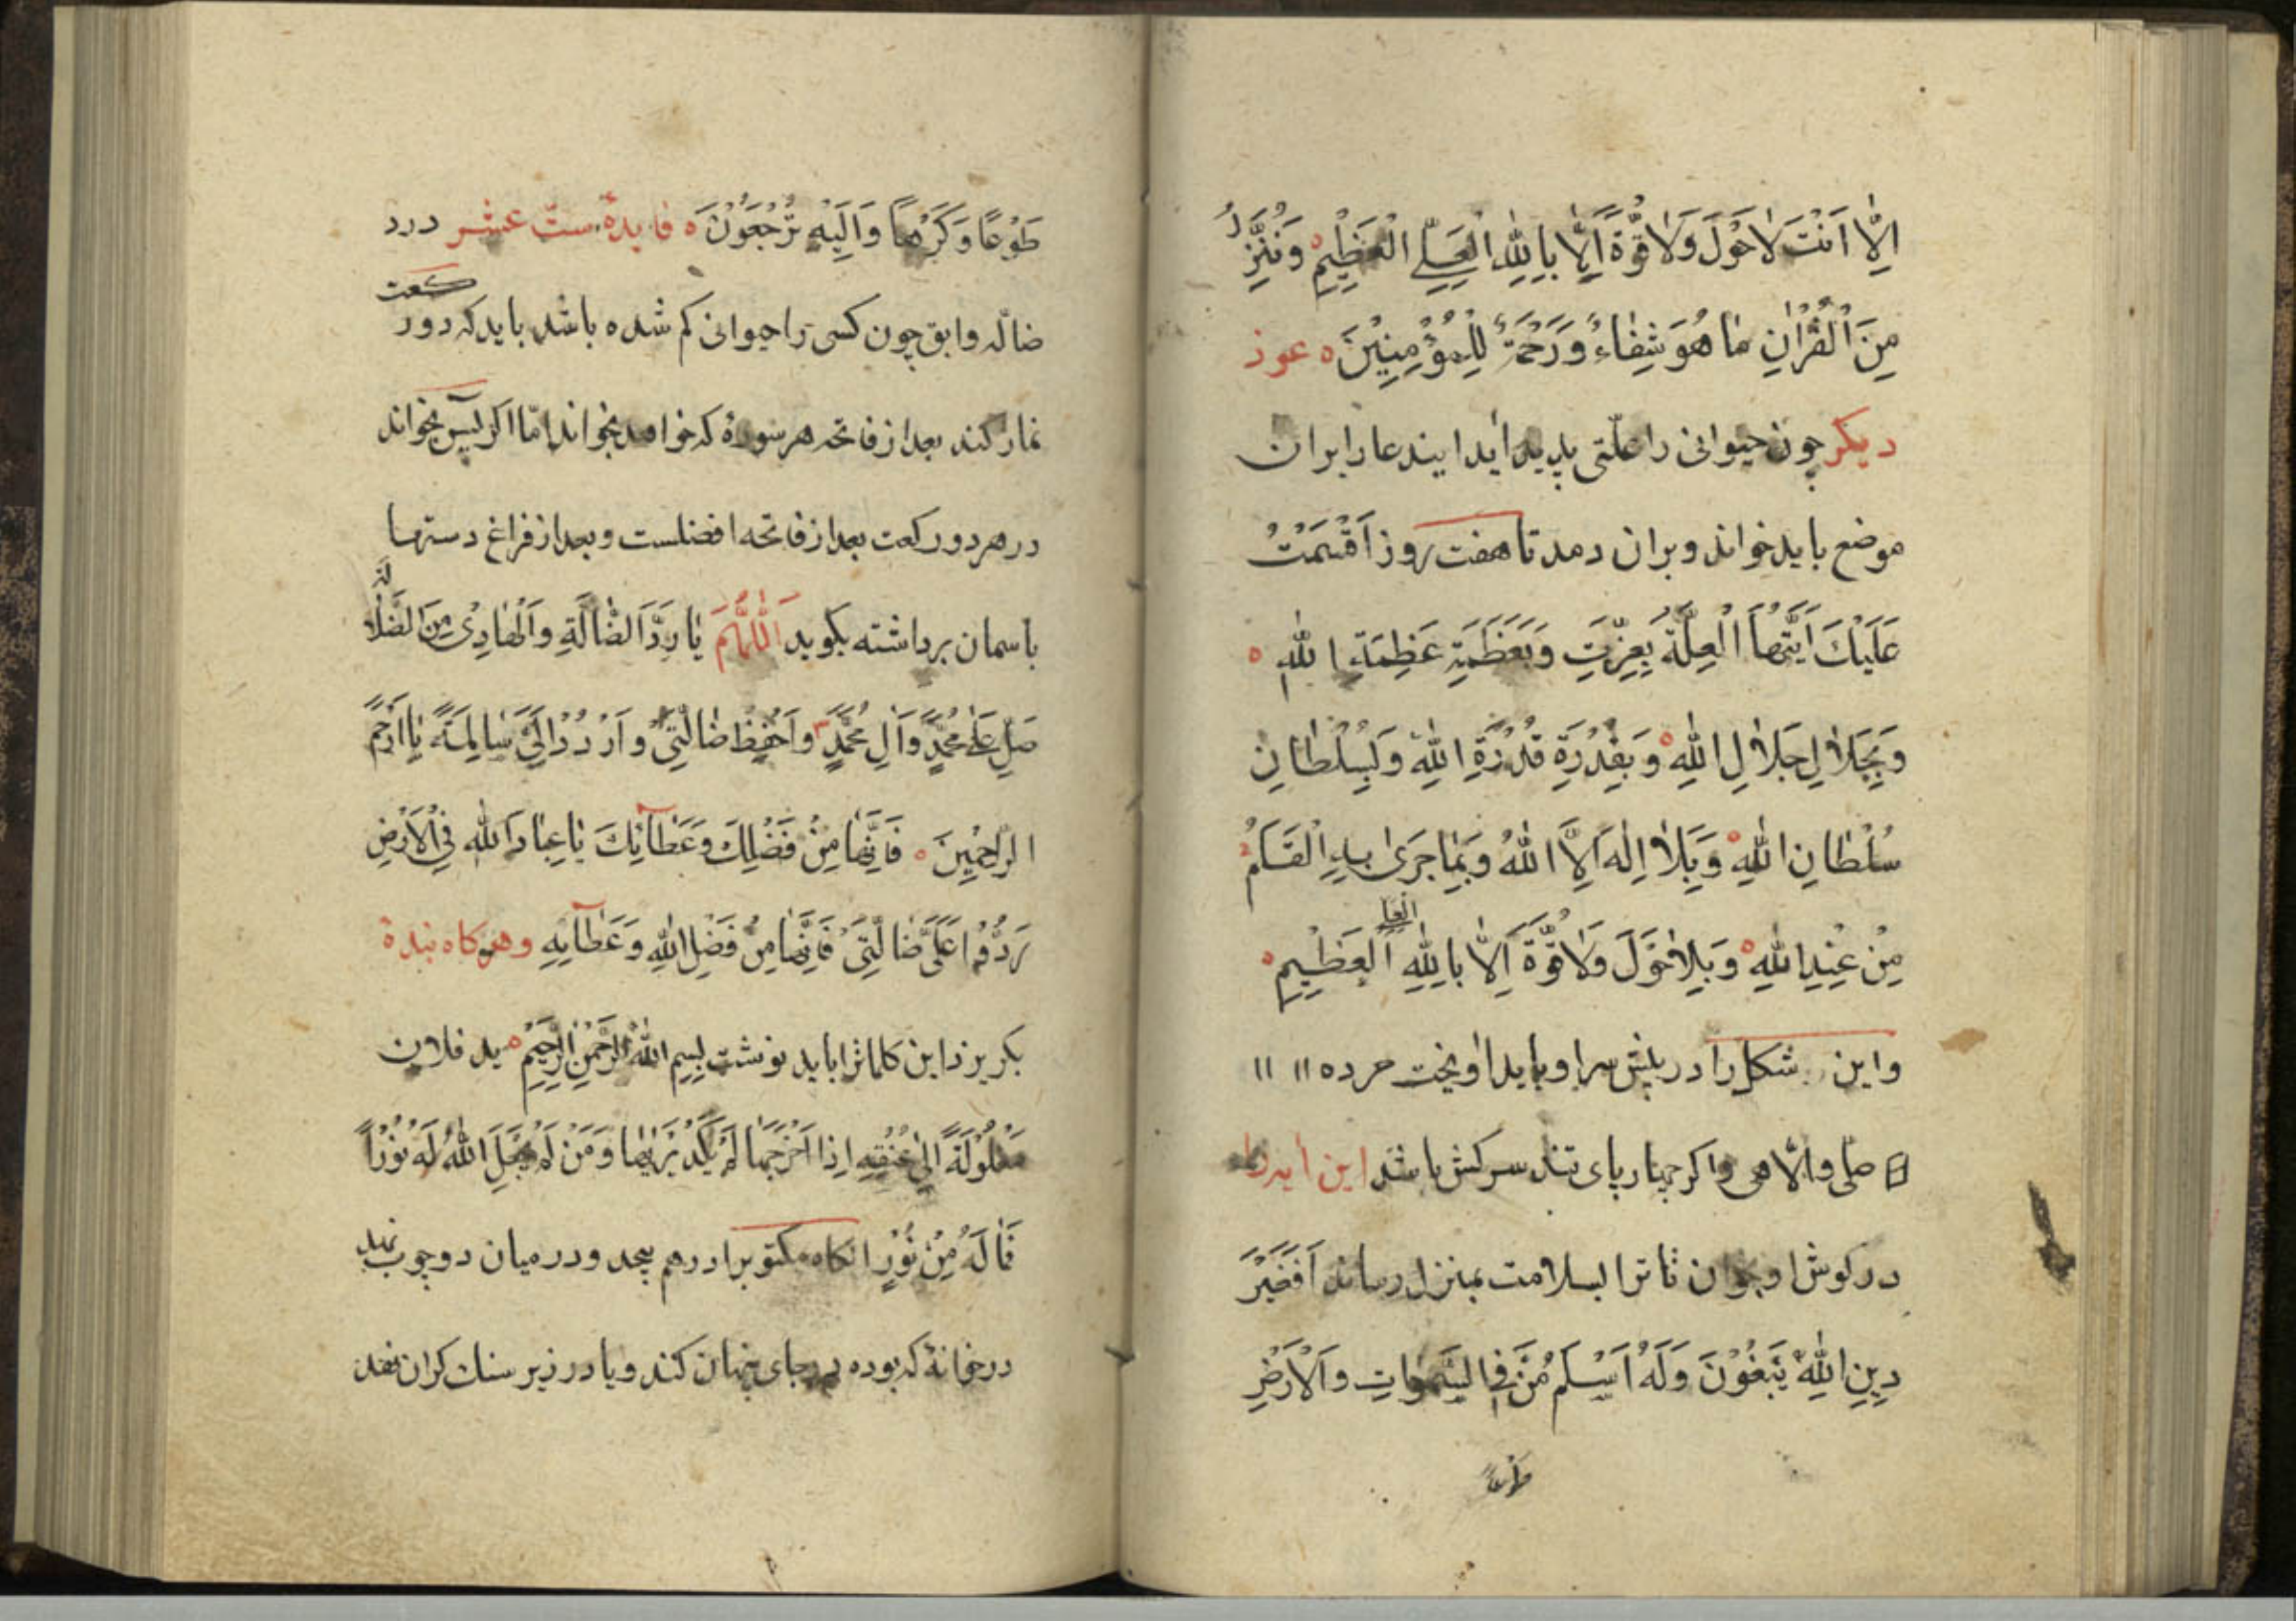 اِلّا اَنْتَ لاحَوْلَ وَلا قُوَّةَ اِلّا بِاللهِ الْعَلِيِّ الْعَظِيْمِ وَنُنَزِّلُ
مِنَ الْقُرْاٰنِ مَا هُوَ شِفَاءٌ وَرَحْمَةٌ لِلْمُؤْمِنِيْنَ ه عوذ
ديكر چون حيوانى را علّتى پديد ايد ايندعا را بران
موضع بايد خواند و بران دمد تا هفت روز اَقْسَمْتُ
عَلَيْكَ اَيَّتُهَا الْعِلَّةُ بِعِزَّتِ وَبِعَظَمَةِ عَظِمَةِ اللهِ ه
وَبِجَلالِ جَلالِ اللهِ ه وَبِقُدْرَةِ قُدْرَةِ اللهِ وَبِسُلْطانِ
سُلْطانِ اللهِ ه وَبِلا اِلٰهَ اِلَّا اللهُ وَبِمَا جَرىٰ بِهِ الْقَلَمُ
مِنْ عِنْدِ اللهِ ه وَبِلاحَوْلَ وَلا قُوَّةَ اِلّا بِاللهِ العلي الْعَظِيْمِ ه
واين شكل را در پيش سر او بايد اويخت ١١ ١١
واكر چهار پاى تند سركش باشد اين ايه را
در كوش او بخوان تا ترا بسلامت بمنزل رساند اَفَغَيْرَ
دِينِ اللهِ يَبْغُوْنَ وَلَهُ اَسْلَمَ مَنْ فِي السَّمٰوَاتِ وَالْاَرْضِ
طَوْعًا
طَوْعًا وَكَرْهًا وَاِلَيْهِ تُرْجَعُوْنَ ه فايدهٔ ستّ عشر در رد
ضاله وابق چون كسى را حيوانى كم شده باشد بايد كه دو ركعت
نماز كند بعد از فاتحه هر سورهٔ كه خواهد بخواند امّا اكر يس بخواند
در هر دو ركعت بعد از فاتحه افضلست و بعد از فراغ دستها
باسمان برداشته بكويد اَللّٰهُمَّ يَا رَدَّ الضَّالَّةِ وَالْهَادِىْ مِنَ الضَّلالَةِ
صَلِّ عَلىٰ مُحَمَّدٍ وَآلِ مُحَمَّدٍ وَاحْفِظْ ضَالَّتِيْ وَارْدُدْ اِلَيَّ سَالِمَةً يَا اَرْحَمَ
الرّاحِمِيْنَ ه فَاِنَّهَا مِنْ فَضْلِكَ وَعَطَآئِكَ يَا عِبَادَ اللهِ فِي الْاَرْضِ
رُدُّوْا عَلَيَّ ضَالَّتِيْ فَاِنَّهَا مِنْ فَضْلِ اللهِ وَعَطَآئِهِ وهركاه بندهٔ
بكريزد اين كلماترا بايد نوشت بِسْمِ اللهِ الرَّحْمٰنِ الرَّحِيْمِ ه يد فلان
مَغْلُوْلَةً اِلىٰ عُنُقِهِ اِذَا اَخْرَجَهَا لَمْ يَكَدْ يَرٰيهَا وَمَنْ لَمْ يَجْعَلِ اللهُ لَهُ نُوْرًا
فَمَا لَهُ مِنْ نُوْرٍ انكاه مكتوبرا در هم پيچد و در ميان دو چوب نهد
در خانهٔ كه بوده در جاى پنهان كند و يا در زير سنك كران نهد